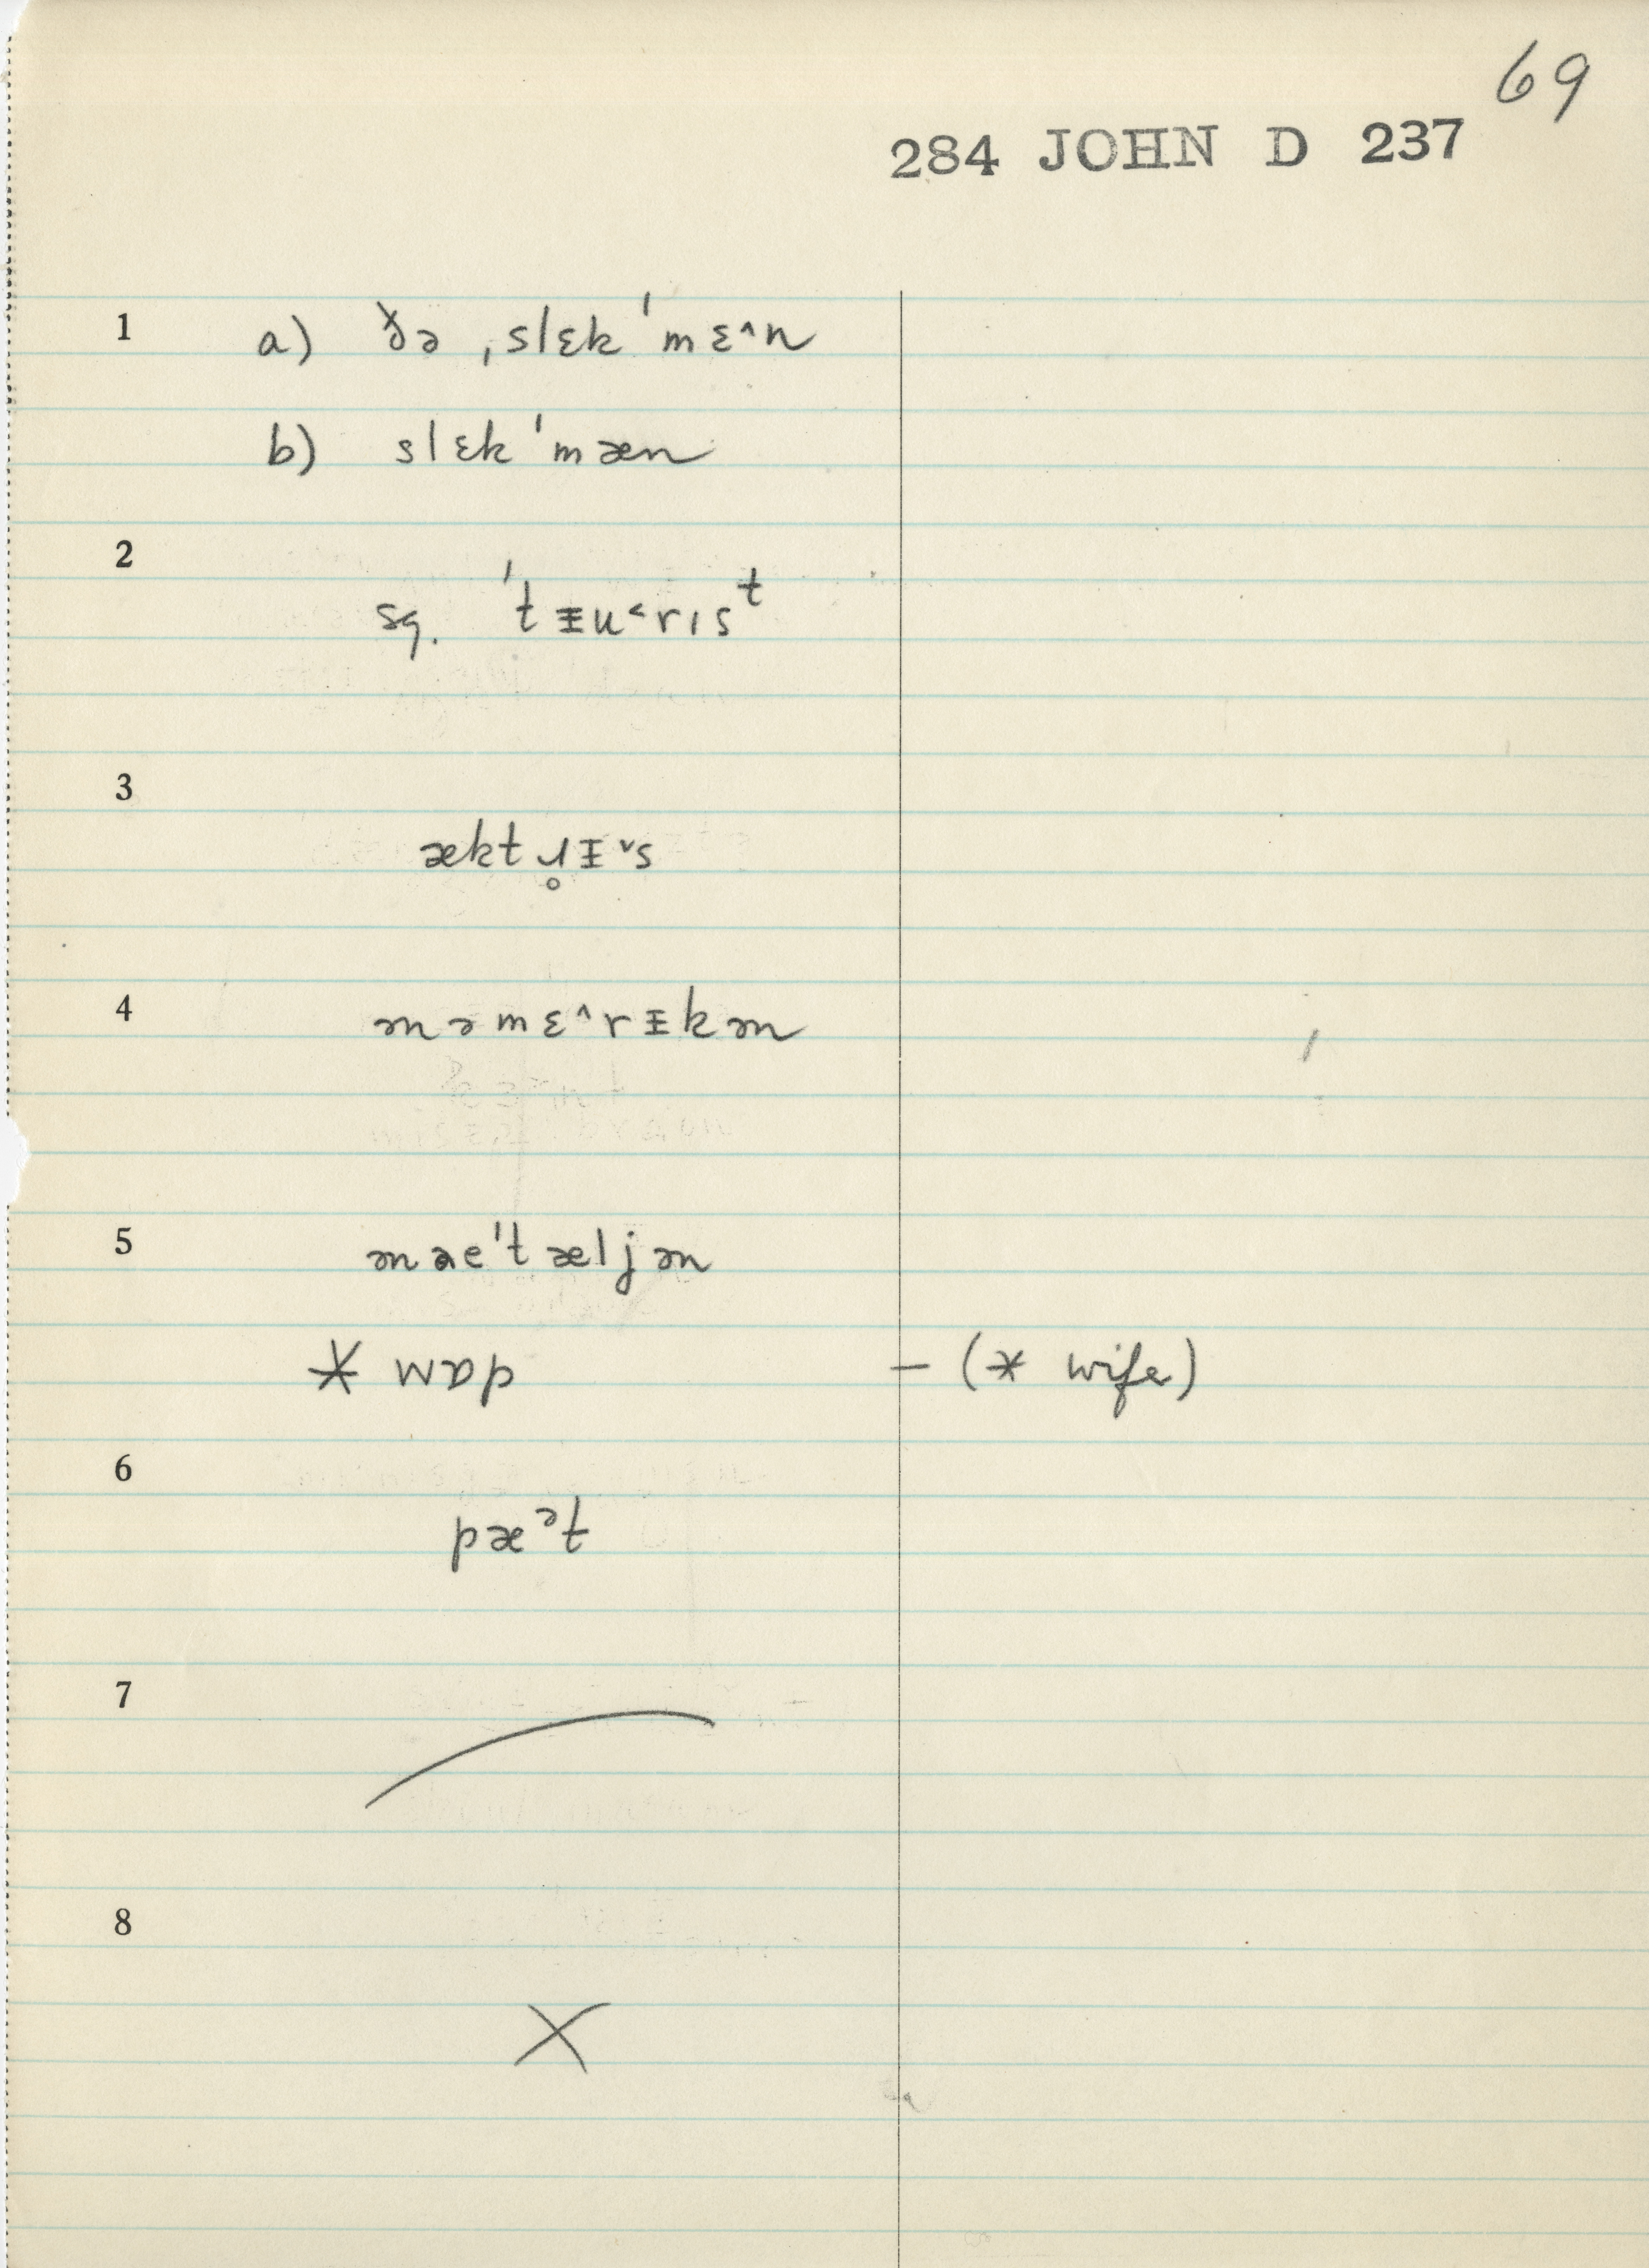 69
284 JOHN D 237
1 a) ðə ˌslɛk ˈmɛ^n
b) slɛk ˈmæn
2
sg. ˈtᵻu˂rɪsᵗ
3
æktɹ̥ᵻ˅s
4 ənəmɛ^rᵻkən
5 ənaeˈtæljən
* wɒp – (* wife)
6
pæᵊt
7
8
X